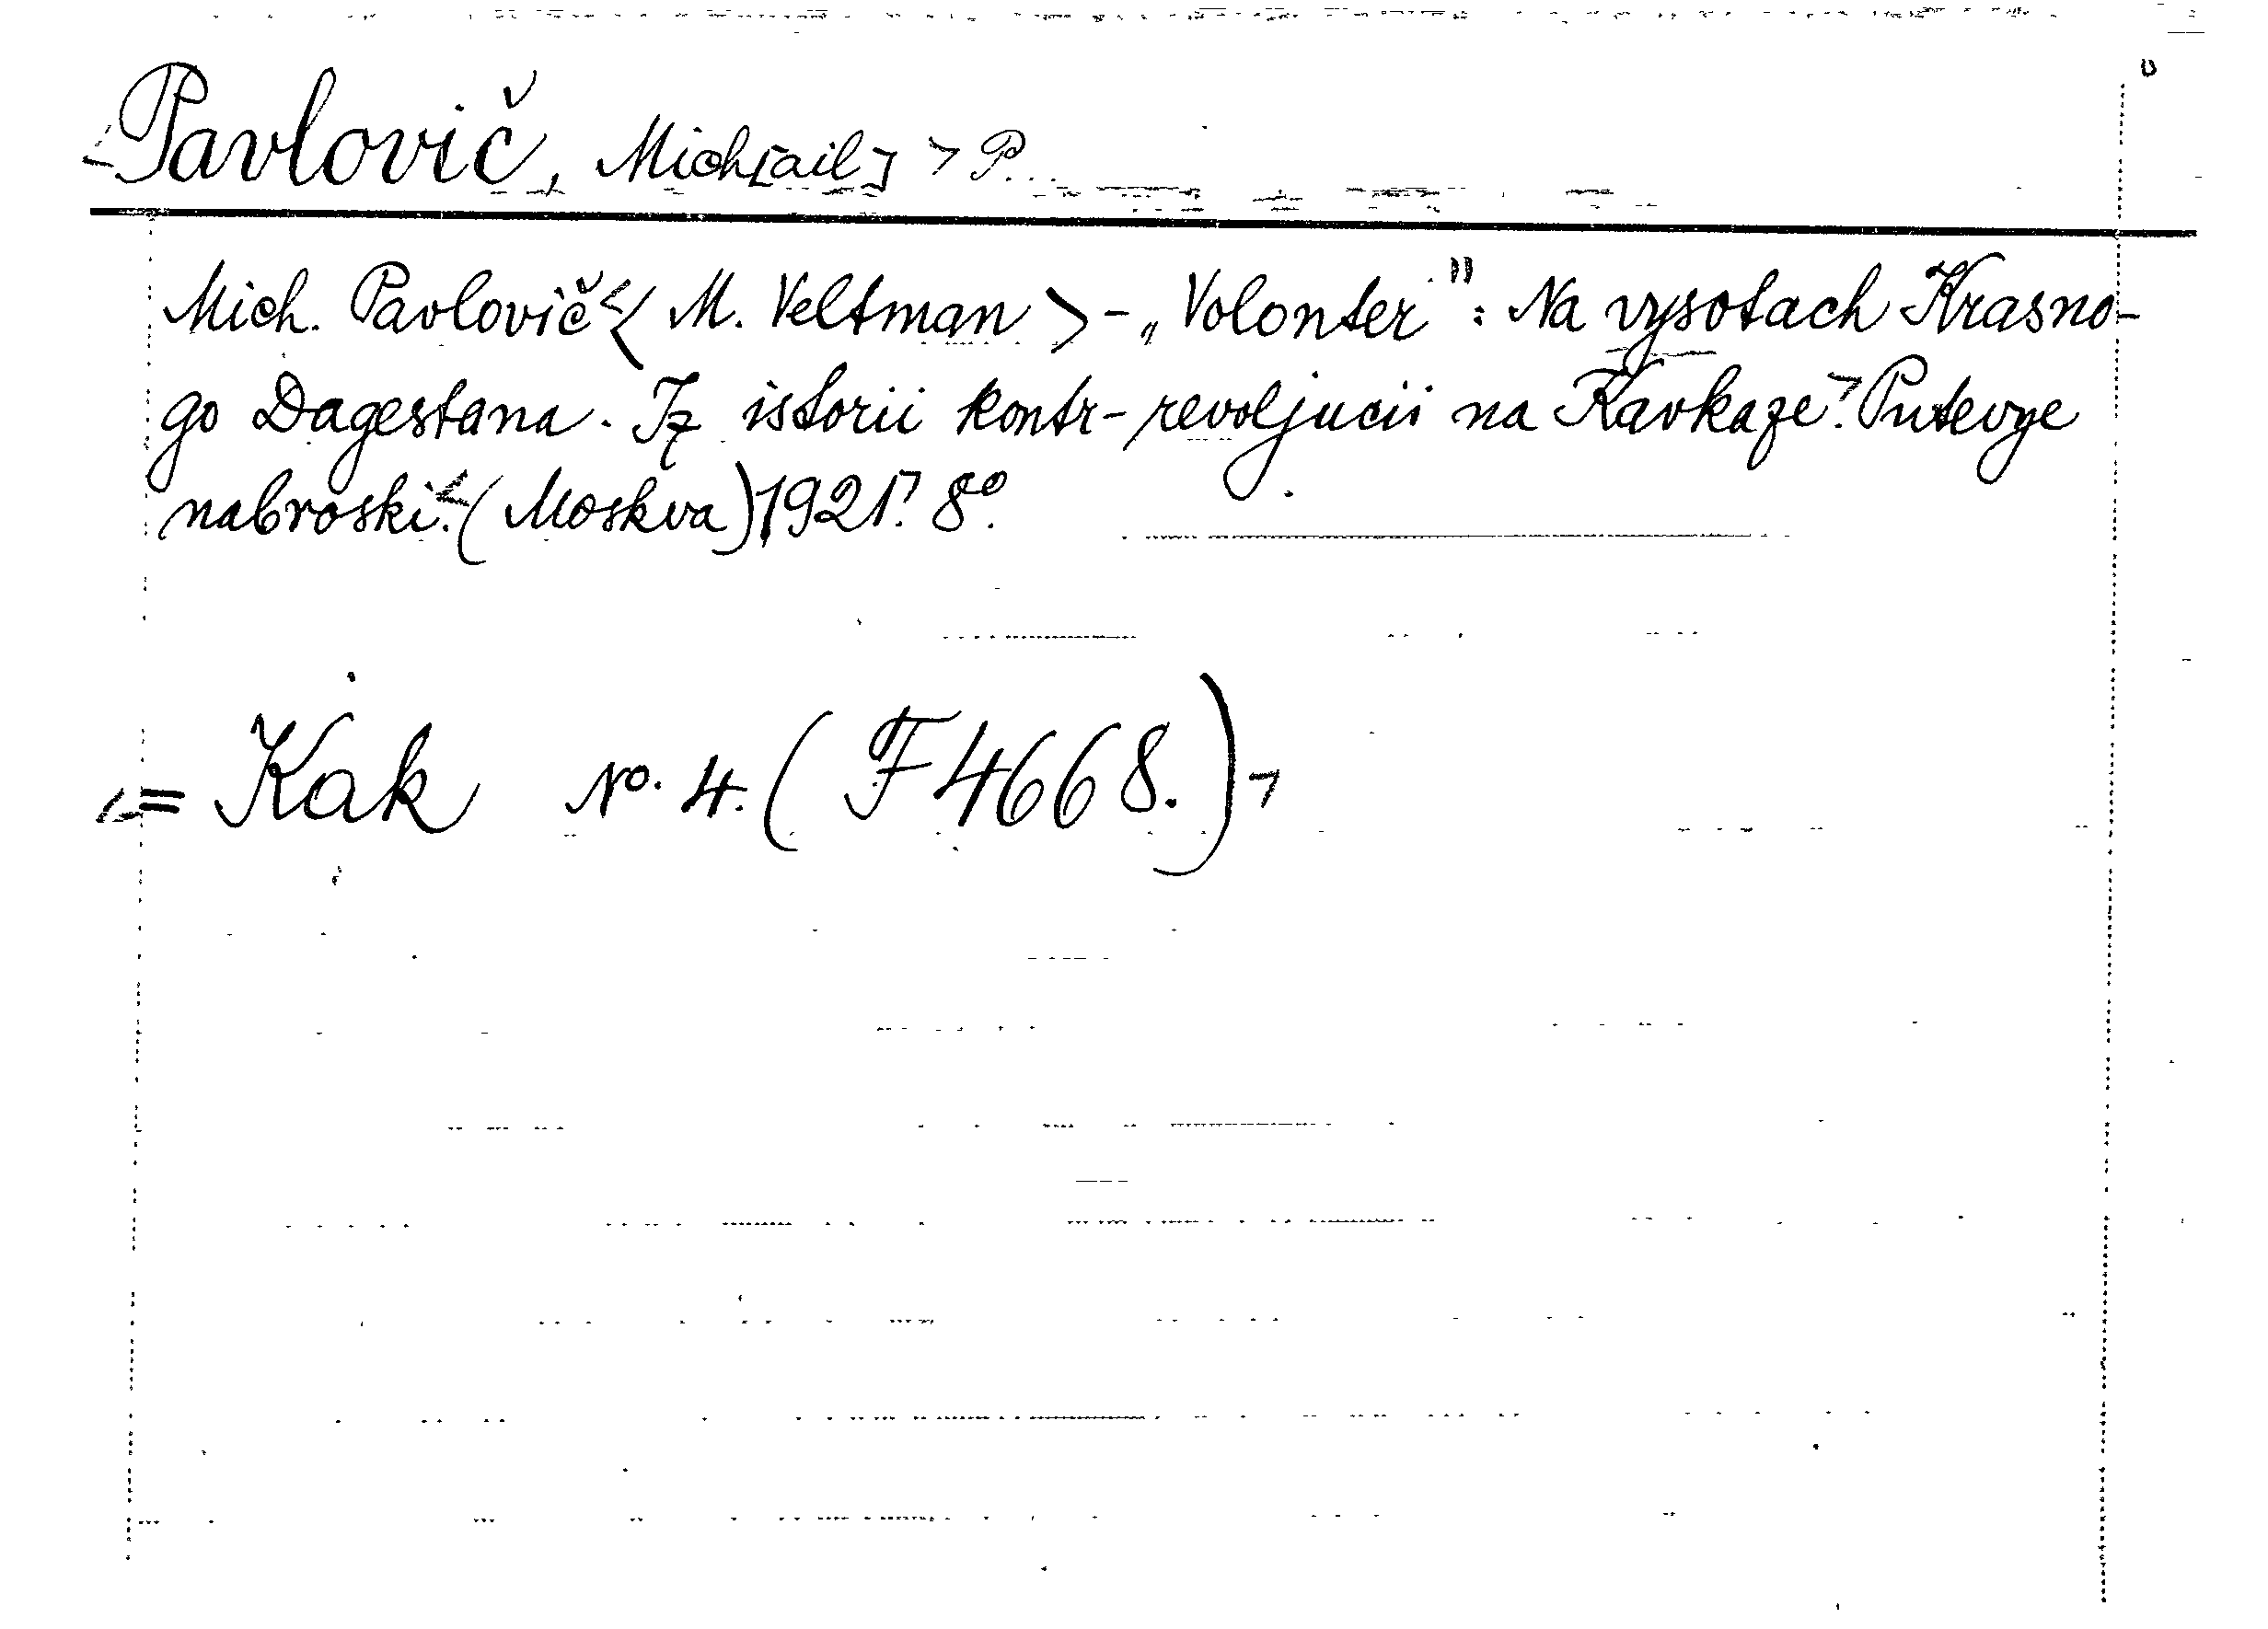 Pavlovič, Mich[ail] P...
Mich. Pavlovič < M. Veltman > - „Volonter": Na vysotach Krasno-
go Dagestana. Iz istorii kontr-revoljucii na Kavkaze. Putevye
nabroski. (Moskva) 1921. 8°.
= Kak No. 4. (F 4668.)